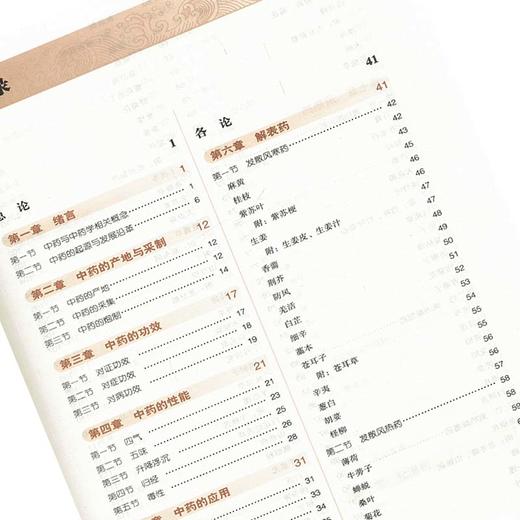 录
总 论 1
第一章 绪言 1
第一节 中药与中药学相关概念 1
第二节 中药的起源与发展沿革 6
第二章 中药的产地与采制 12
第一节 中药的产地 12
第二节 中药的采集 12
第三节 中药的炮制 14
第三章 中药的功效 17
第一节 对证功效 17
第二节 对症功效 18
第三节 对病功效 19
第四章 中药的性能 21
第一节 四气 21
第二节 五味 23
第三节 升降浮沉 25
第四节 归经 26
第五节 毒性 28
中药的应用 31
各 论 41
第六章 解表药 41
第一节 发散风寒药 42
麻黄 42
桂枝 43
紫苏叶 45
附：紫苏梗 46
生姜 46
附：生姜皮、生姜汁
香薷
荆芥
防风
羌活
白芷
细辛
藁本
苍耳子
附：苍耳草
辛夷
葱白
胡荽
柽柳
第二节 发散风热药
薄荷
牛蒡子
蝉蜕
桑叶
菊花